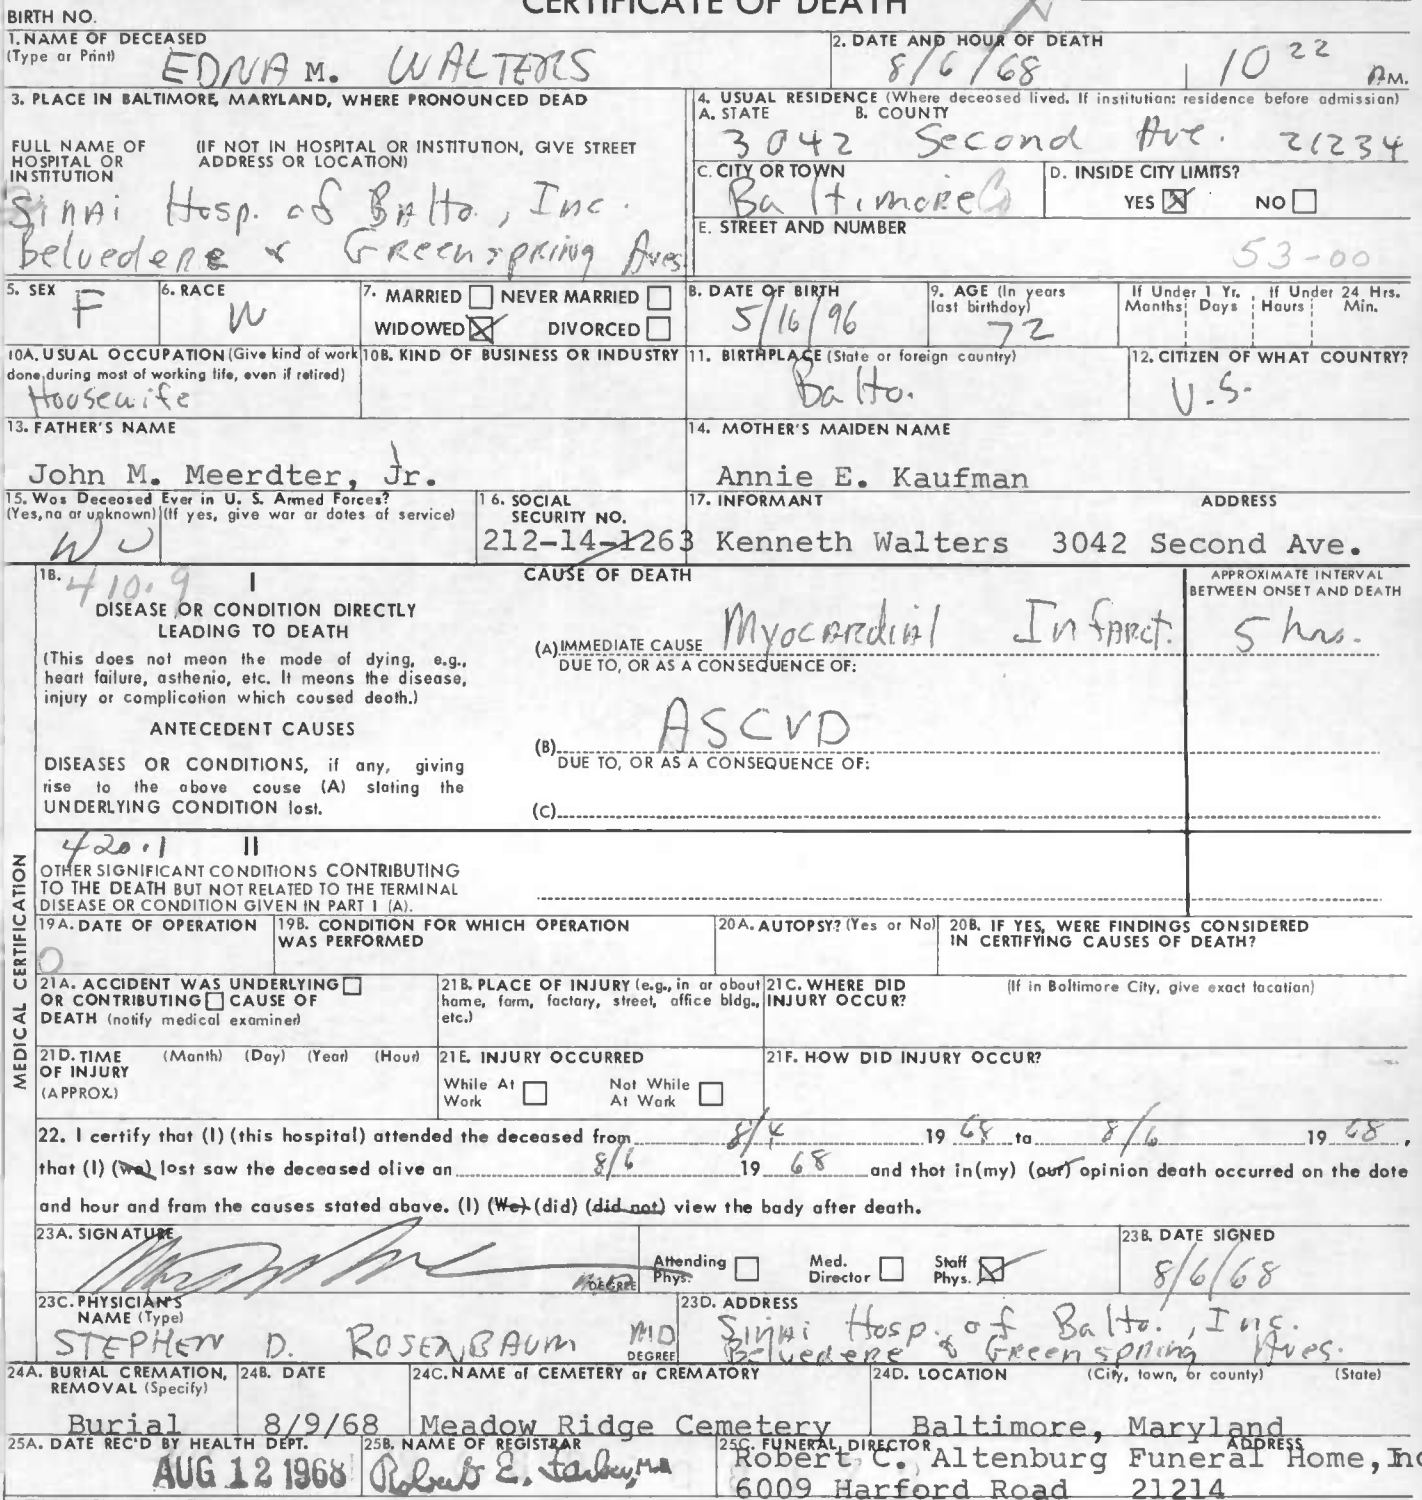 CERTIFICATE OF DEATH
BIRTH NO.
1. NAME OF DECEASED
(Type or Print)
EDNA M. WALTERS
2. DATE AND HOUR OF DEATH
8/6/68 10 22 A M.
3. PLACE IN BALTIMORE, MARYLAND, WHERE PRONOUNCED DEAD
FULL NAME OF HOSPITAL OR INSTITUTION
(IF NOT IN HOSPITAL OR INSTITUTION, GIVE STREET ADDRESS OR LOCATION)
Sinai Hosp. of Balto., Inc.
Belvedere & Greenspring Aves.
4. USUAL RESIDENCE (Where deceased lived. If institution: residence before admission)
A. STATE B. COUNTY
3042 Second Ave. 21234
C. CITY OR TOWN
Baltimore Co
D. INSIDE CITY LIMITS?
YES NO
E. STREET AND NUMBER
53-00
5. SEX
F
6. RACE
W
7. MARRIED NEVER MARRIED
WIDOWED DIVORCED
8. DATE OF BIRTH
5/16/96
9. AGE (In years last birthday)
72
If Under 1 Yr. If Under 24 Hrs.
Months Days Hours Min.
10A. USUAL OCCUPATION (Give kind of work done during most of working life, even if retired)
Housewife
10B. KIND OF BUSINESS OR INDUSTRY
11. BIRTHPLACE (State or foreign country)
Balto.
12. CITIZEN OF WHAT COUNTRY?
U.S.
13. FATHER'S NAME
John M. Meerdter, Jr.
14. MOTHER'S MAIDEN NAME
Annie E. Kaufman
15. Was Deceased Ever in U. S. Armed Forces?
(Yes, no or unknown) (If yes, give war or dates of service)
16. SOCIAL SECURITY NO.
212-14-1263
17. INFORMANT ADDRESS
Kenneth Walters 3042 Second Ave.
18. 410.9 I
CAUSE OF DEATH
APPROXIMATE INTERVAL BETWEEN ONSET AND DEATH
DISEASE OR CONDITION DIRECTLY
LEADING TO DEATH
(This does not meon the mode of dying, e.g.,
heart failure, asthenio, etc. It meons the disease,
injury or complicotion which coused deoth.)
(A) IMMEDIATE CAUSE Myocardial Infarct. 5 hrs.
DUE TO, OR AS A CONSEQUENCE OF:
ANTECEDENT CAUSES
DISEASES OR CONDITIONS, if any, giving
rise to the obove couse (A) stating the
UNDERLYING CONDITION lost.
(B) ASCVD
DUE TO, OR AS A CONSEQUENCE OF:
(C)
420.1 II
OTHER SIGNIFICANT CONDITIONS CONTRIBUTING
TO THE DEATH BUT NOT RELATED TO THE TERMINAL
DISEASE OR CONDITION GIVEN IN PART I (A).
MEDICAL CERTIFICATION
19A. DATE OF OPERATION
0
19B. CONDITION FOR WHICH OPERATION WAS PERFORMED
20A. AUTOPSY? (Yes or No)
20B. IF YES, WERE FINDINGS CONSIDERED IN CERTIFYING CAUSES OF DEATH?
21A. ACCIDENT WAS UNDERLYING
OR CONTRIBUTING CAUSE OF
DEATH (notify medical examiner)
21B. PLACE OF INJURY (e.g., in or obout
home, form, foctory, street, office bldg.,
etc.)
21C. WHERE DID INJURY OCCUR?
(If in Boltimore City, give exoct location)
21D. TIME OF INJURY (Month) (Day) (Year) (Hour)
(APPROX.)
21E. INJURY OCCURRED
While At Work Not While At Work
21F. HOW DID INJURY OCCUR?
22. I certify that (I) (this hospital) attended the deceased from 8/4 19 68 to 8/6 19 68,
that (I) (we) lost saw the deceased olive an 8/6 19 68 and thot in (my) (our) opinion death occurred on the dote
and hour and fram the causes stated abave. (I) (We) (did) (did not) view the body after death.
23A. SIGNATURE
DEGREE
Attending Phys. Med. Director Staff Phys.
23B. DATE SIGNED
8/6/68
23C. PHYSICIAN'S NAME (Type)
STEPHEN D. ROSENBAUM MD
DEGREE
23D. ADDRESS
Sinai Hosp. of Balto., Inc.
Belvedere & Greenspring Aves.
24A. BURIAL CREMATION, REMOVAL (Specify)
Burial
24B. DATE
8/9/68
24C. NAME of CEMETERY or CREMATORY
Meadow Ridge Cemetery
24D. LOCATION (City, town, or county) (State)
Baltimore, Maryland
25A. DATE REC'D BY HEALTH DEPT.
AUG 12 1968
25B. NAME OF REGISTRAR
Robert E. Farber, M.D.
25C. FUNERAL DIRECTOR ADDRESS
Robert C. Altenburg Funeral Home, Inc
6009 Harford Road 21214